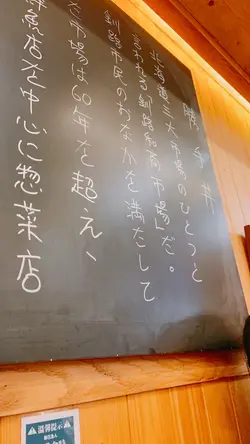 勝手丼
北海道三大市場のひとつと
言われる釧路「和商市場」だ。
釧路市民のおなかを満たして
市場は60年を超え、
鮮魚店を中心に惣菜店
溫馨提示